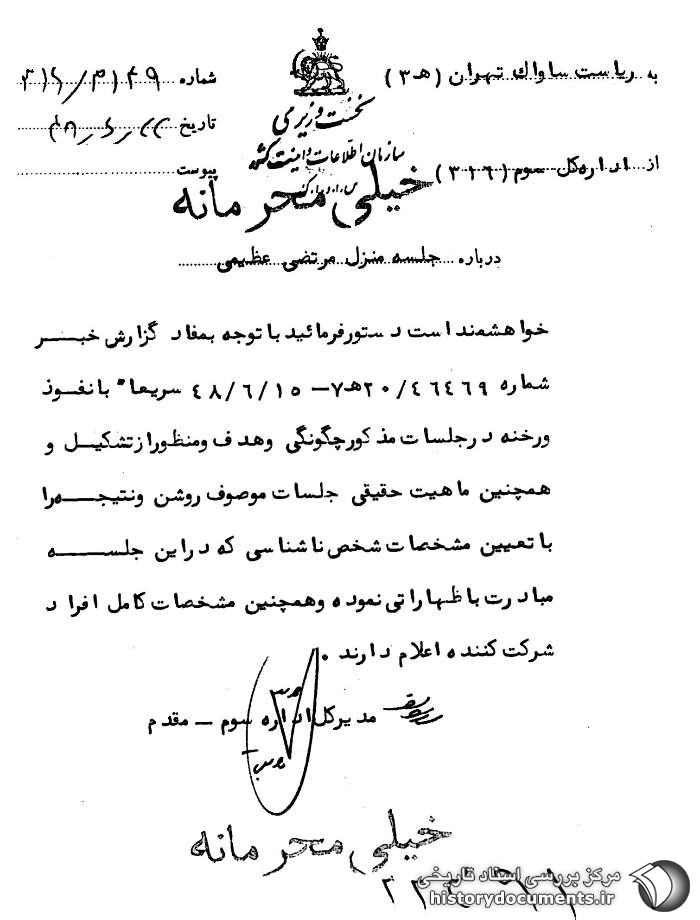 به ریاست ساواك تهران (هـ ۳)
از اداره کل سوم (۳۱۶)
نخست وزیری
سازمان اطلاعات و امنیت کشور
شماره ۳۱۶/۳۱۴۹
تاریخ
پیوست
خیلی محرمانه
درباره جلسه منزل مرتضی عظیمی
خواهشمند است دستور فرمائید با توجه بمفاد گزارش خبر
شماره ۲۰/۴۶۴۶۹هـ۷– ۴۸/۶/۱۵ سریعاً با نفوذ
ورخنه در جلسات مذکور چگونگی وهدف ومنظور از تشکیل و
همچنین ماهیت حقیقی جلسات موصوف روشن ونتیجه را
با تعیین مشخصات شخص ناشناسی که در این جلسه
مبادرت باظهاراتی نموده وهمچنین مشخصات کامل افراد
شرکت کننده اعلام دارند.
مدیرکل اداره سوم – مقدم
خیلی محرمانه
مرکز بررسی اسناد تاریخی
historydocuments.ir